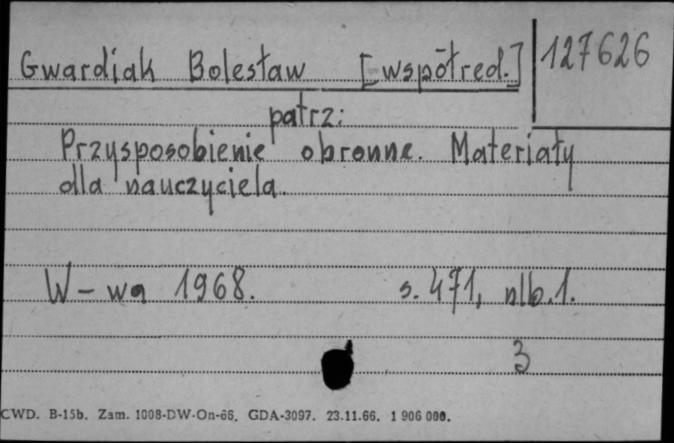 Gwardiak Bolesław [współred.]
127626
patrz:
Przysposobienie obronne. Materiały
dla nauczyciela.
W-wa 1968. s. 471, nlb. 1.
3
CWD. B-15b. Zam. 1008-DW-On-66. GDA-3097. 23.11.66. 1 906 000.